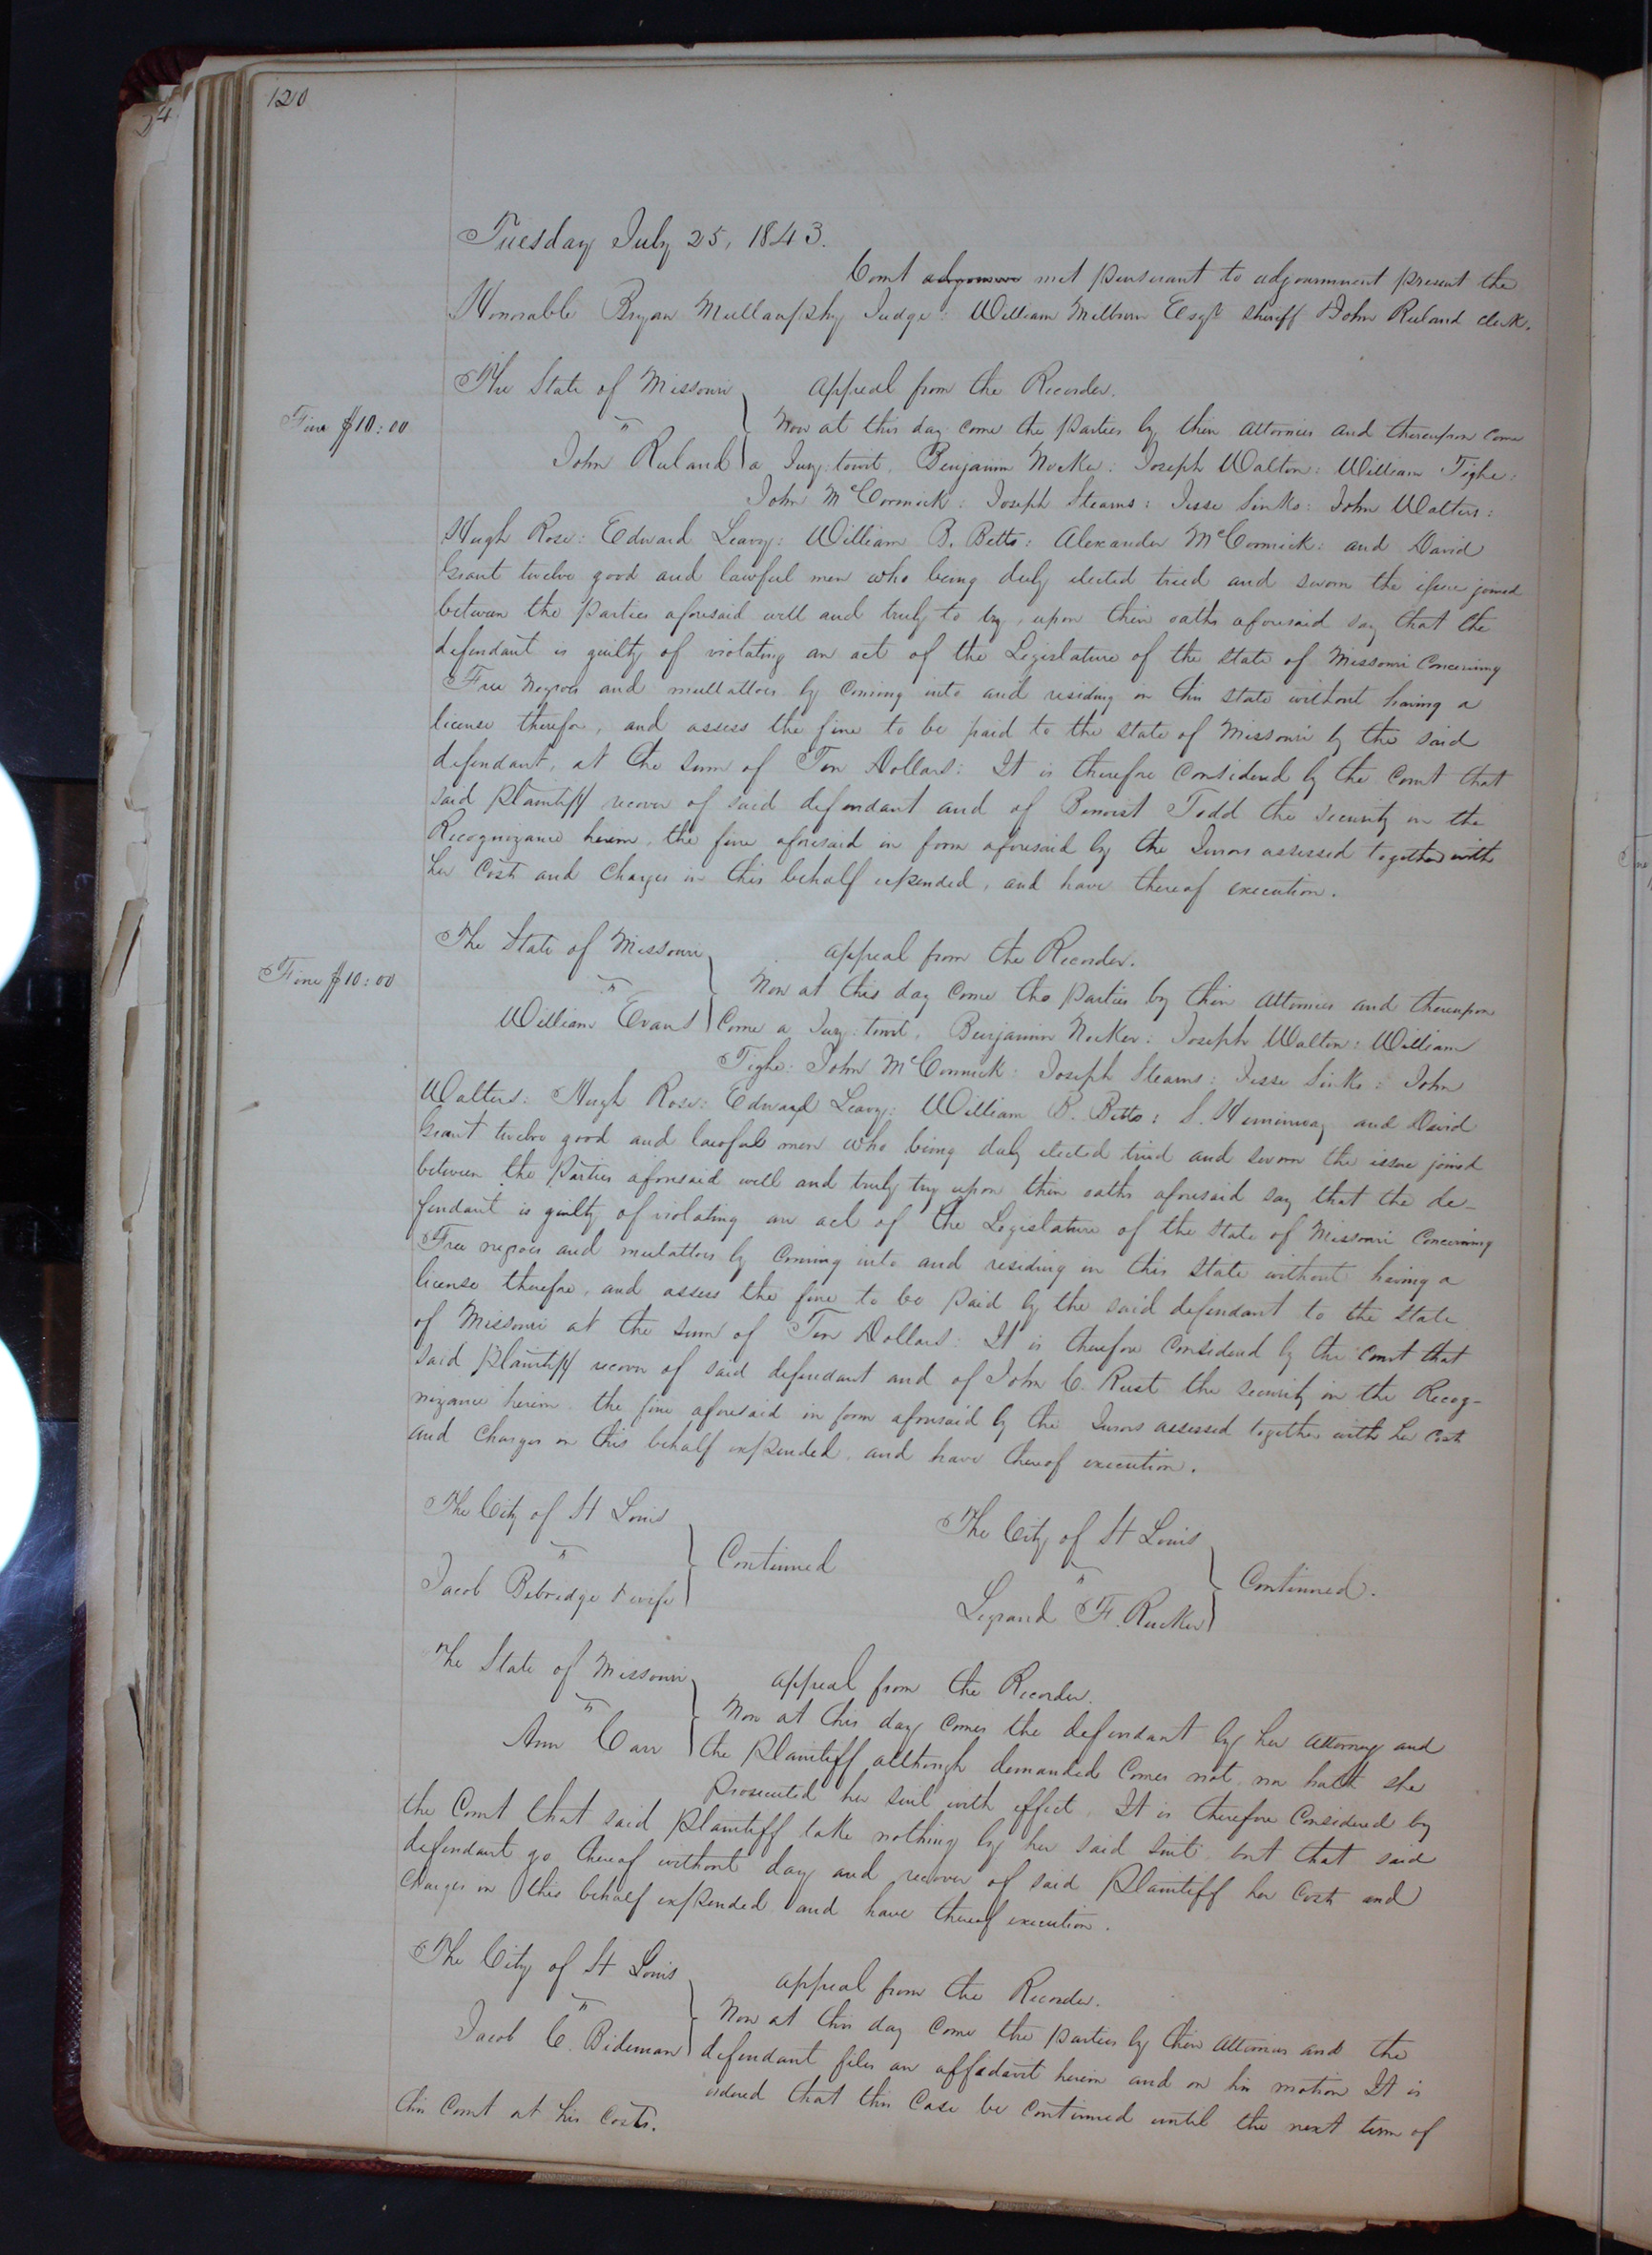 120
Tuesday July 25, 1843.
Court adjourne met pursuant to adjournment present the
Honorable Bryan Mullanphy Judge: William Milburn Esqr sheriff & John Ruland clerk.
The State of Missouri
vs
John Ruland
Fine $10:00
appeal from the Recorder.
Now at this day come the parties by their attornies and thereupon come
a Jury: towit, Benjamin Nocker: Joseph Walton: William Tighe:
John McCormick: Joseph Stearns: Jesse Sinks: John Walters:
Hugh Rose: Edward Leavy: William B. Betts: Alexander McCormick: and David
Grant twelve good and lawful men who being duly elected tried and sworn the issue joined
between the parties aforesaid well and truly to try, upon their oaths aforesaid say that the
defendant is guilty of violating an act of the Legislature of the state of Missouri Concerning
Free Negroes and mullattoes by Coming into and residing in this state without having a
license therefor, and assess the fine to be paid to the state of Missouri by the said
defendant, at the sum of Ten Dollars: It is therefore Considered by the Court that
said plaintiff recover of said defendant and of Benoist Todd the security in the
Recognizance herein, the fine aforesaid in form aforesaid by the Jurors assessed together with
her Costs and Charges in this behalf expended, and have thereof execution.
The State of Missouri
vs
William Evans
Fine $10:00
appeal from the Recorder.
Now at this day Come the parties by their attornies and thereupon
Come a Jury: towit, Benjamin Nocker: Joseph Walton: William
Tighe: John McCormick: Joseph Stearns: Jesse Sinks: John
Walters: Hugh Rose: Edward Leavy: William B. Betts: S. Hemenway and David
Grant twelve good and lawful men who being duly elected tried and sworn the issue joined
between the parties aforesaid well and truly try upon their oaths aforesaid say that the de-
fendant is guilty of violating an act of the Legislature of the state of Missouri Concerning
Free negroes and mulattoes by Coming into and residing in this state without having a
license therefore, and assess the fine to be paid by the said defendant to the state
of Missouri at the sum of Ten Dollars: It is therefore Considered by the Court that
said plaintiff recover of said defendant and of John C. Rust the security in the Recog-
nizance herein the fine aforesaid in form aforesaid by the Jurors assessed together with her Costs
and Charges in this behalf expended, and have thereof execution.
The City of St Louis
vs
Jacob Bebridge & wife
Continued
The City of St Louis
vs
Legrand F. Rucker
Continued.
The State of Missouri
vs
Ann Carr
appeal from the Recorder.
Now at this day Comes the defendant by her attorney and
the Plaintiff although demanded Comes not, nor hath she
prosecuted her suit with effect, It is therefore Considered by
the Court that said Plaintiff take nothing by her said suit but that said
defendant go thereof without day and recover of said Plaintiff her Costs and
Charges in this behalf expended and have thereof execution.
The City of St Louis
vs
Jacob C. Bideman
appeal from the Recorder.
Now at this day Come the parties by their attornies and the
defendant files an affadavit herein and on his motion It is
ordered that this Case be Continued until the next term of
this Court at his Costs.